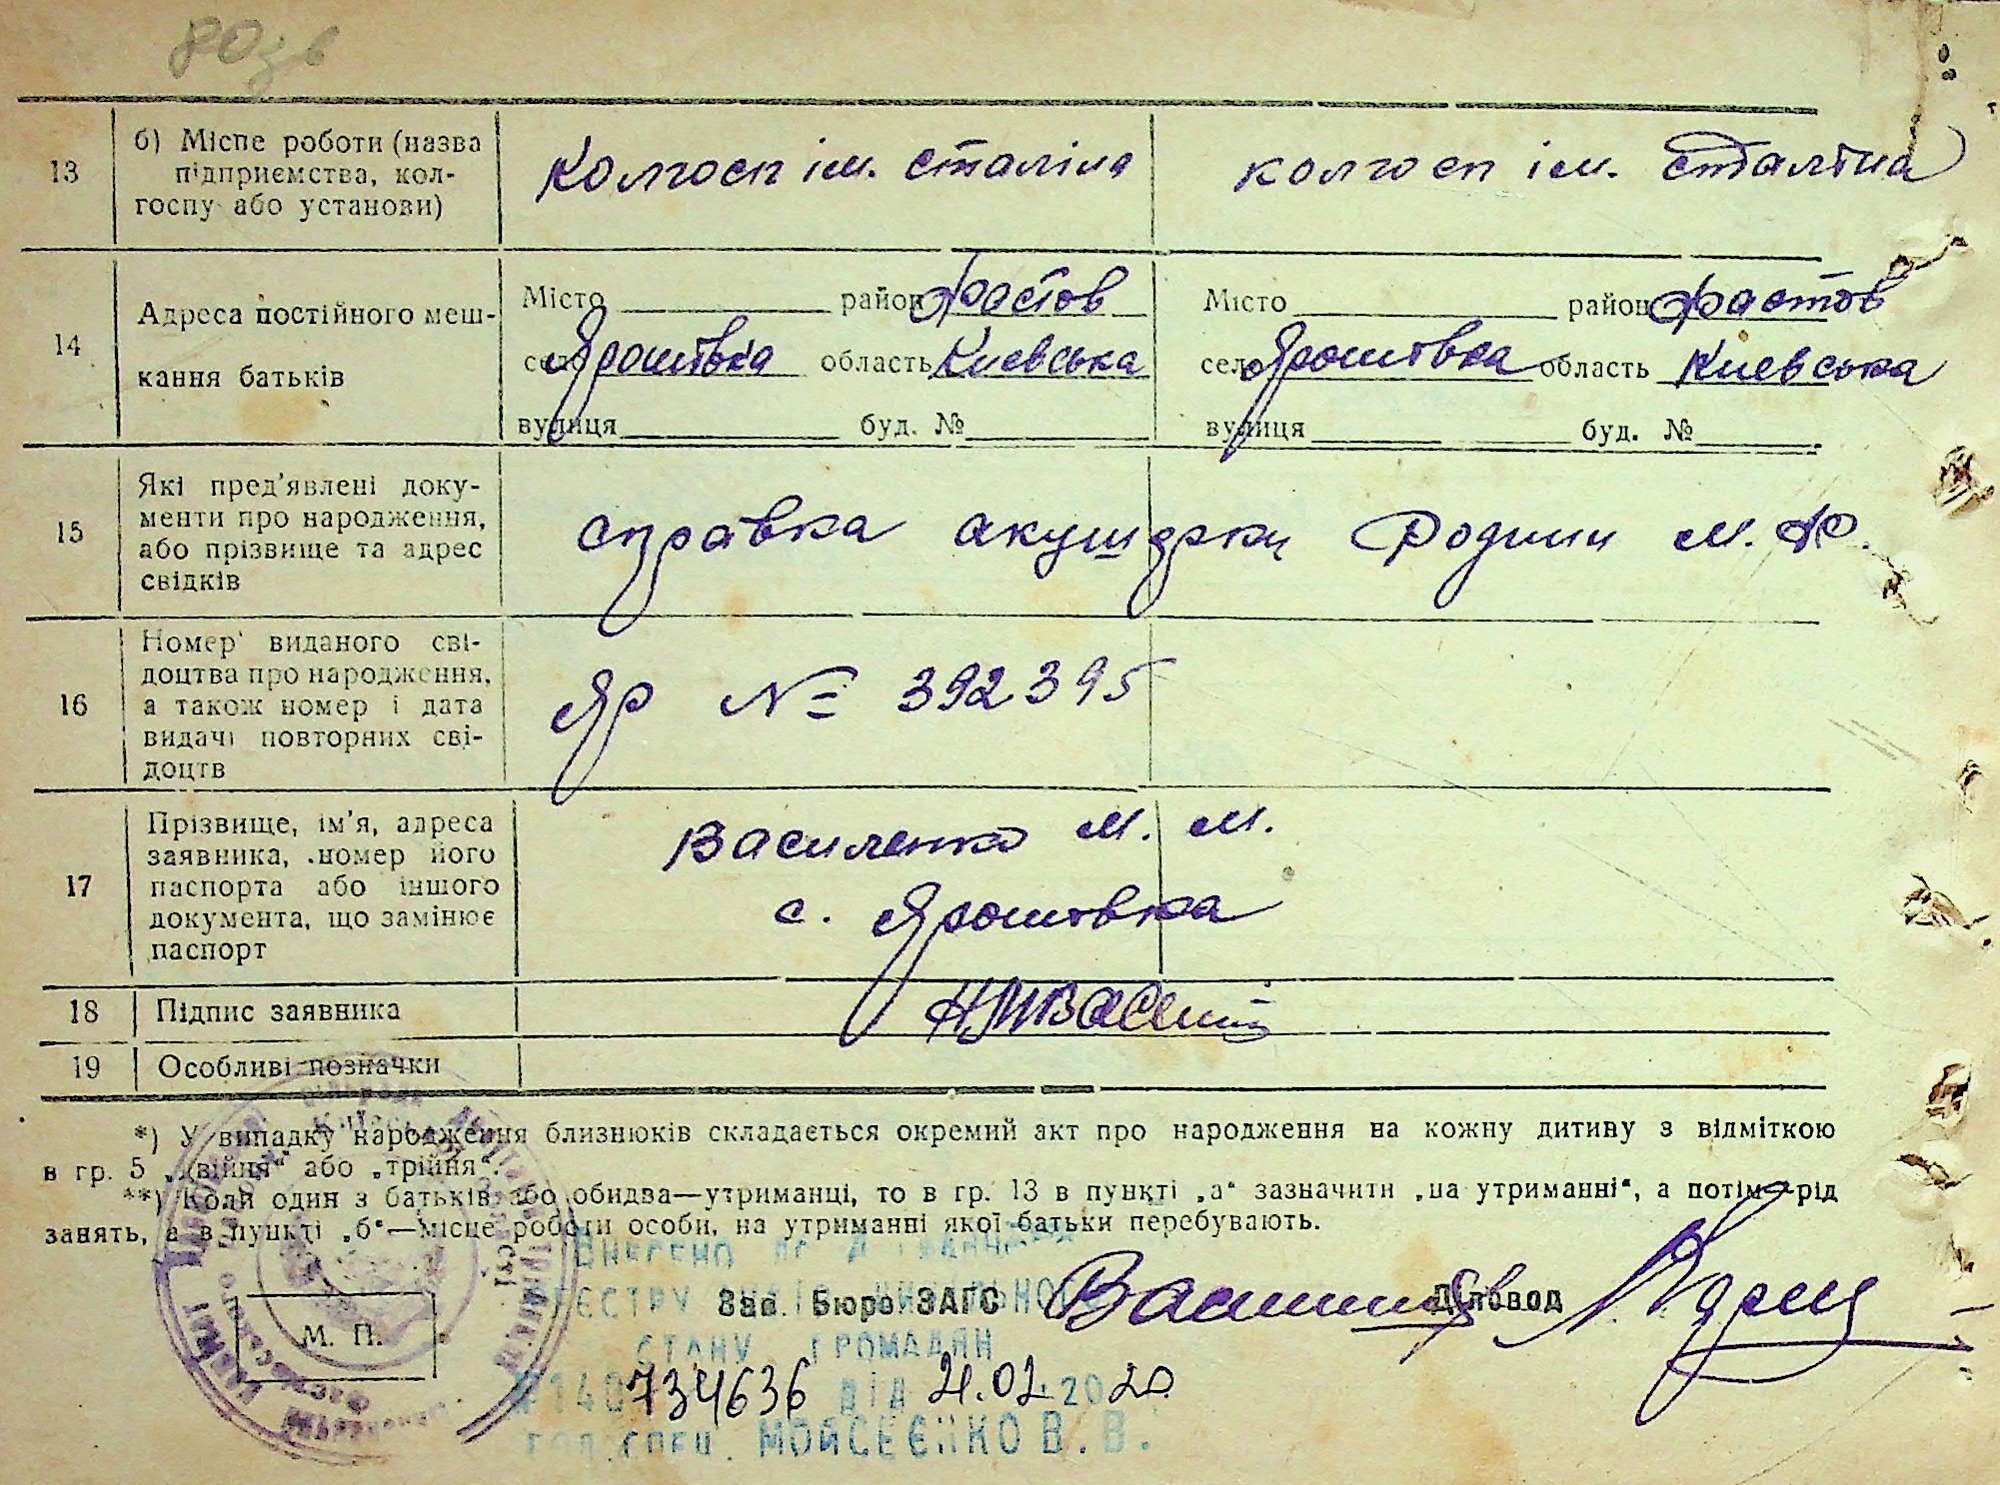 80зв
13 б) Місце роботи (назва
підприємства, кол-
госпу або установи)
Колгосп ім. Сталіна колгосп ім. Сталіна
14 Адреса постійного меш-
кання батьків
Місто район Фастов Місто район Фастов
село Ярошівка область Киевська село Ярошівка область Киевська
вулиця буд. № вулиця буд. №
15 Які пред'явлені доку-
менти про народження,
або прізвище та адрес
свідків
справка акушерки Родини М. Ф.
16 Номер виданого сві-
доцтва про народження,
а також номер і дата
видачі повторних сві-
доцтв
Яр № 392395
17 Прізвище, ім'я, адреса
заявника, номер його
паспорта або іншого
документа, що замінює
паспорт
Василенко М. М.
с. Ярошівка
18 Підпис заявника
19 Особливі позначки
*) У випадку народження близнюків складається окремий акт про народження на кожну дитину з відміткою
в гр. 5 „двійня“ або „трійня“.
**) Коли один з батьків або обидва—утриманці, то в гр. 13 в пункті „а“ зазначити „на утриманні“, а потім рід
занять, а в пункті „б“—місце роботи особи, на утриманні якої батьки перебувають.
ВНЕСЕНО ДО ДЕРЖАВНОГО
РЕЄСТРУ АКТІВ ЦИВІЛЬНОГО
Зав. Бюро ЗАГС Діловод
СТАНУ ГРОМАДЯН
М. П.
№140734636 від 21.02.2020
ГОЛ.СПЕЦ. МОЙСЕЄНКО В.В.